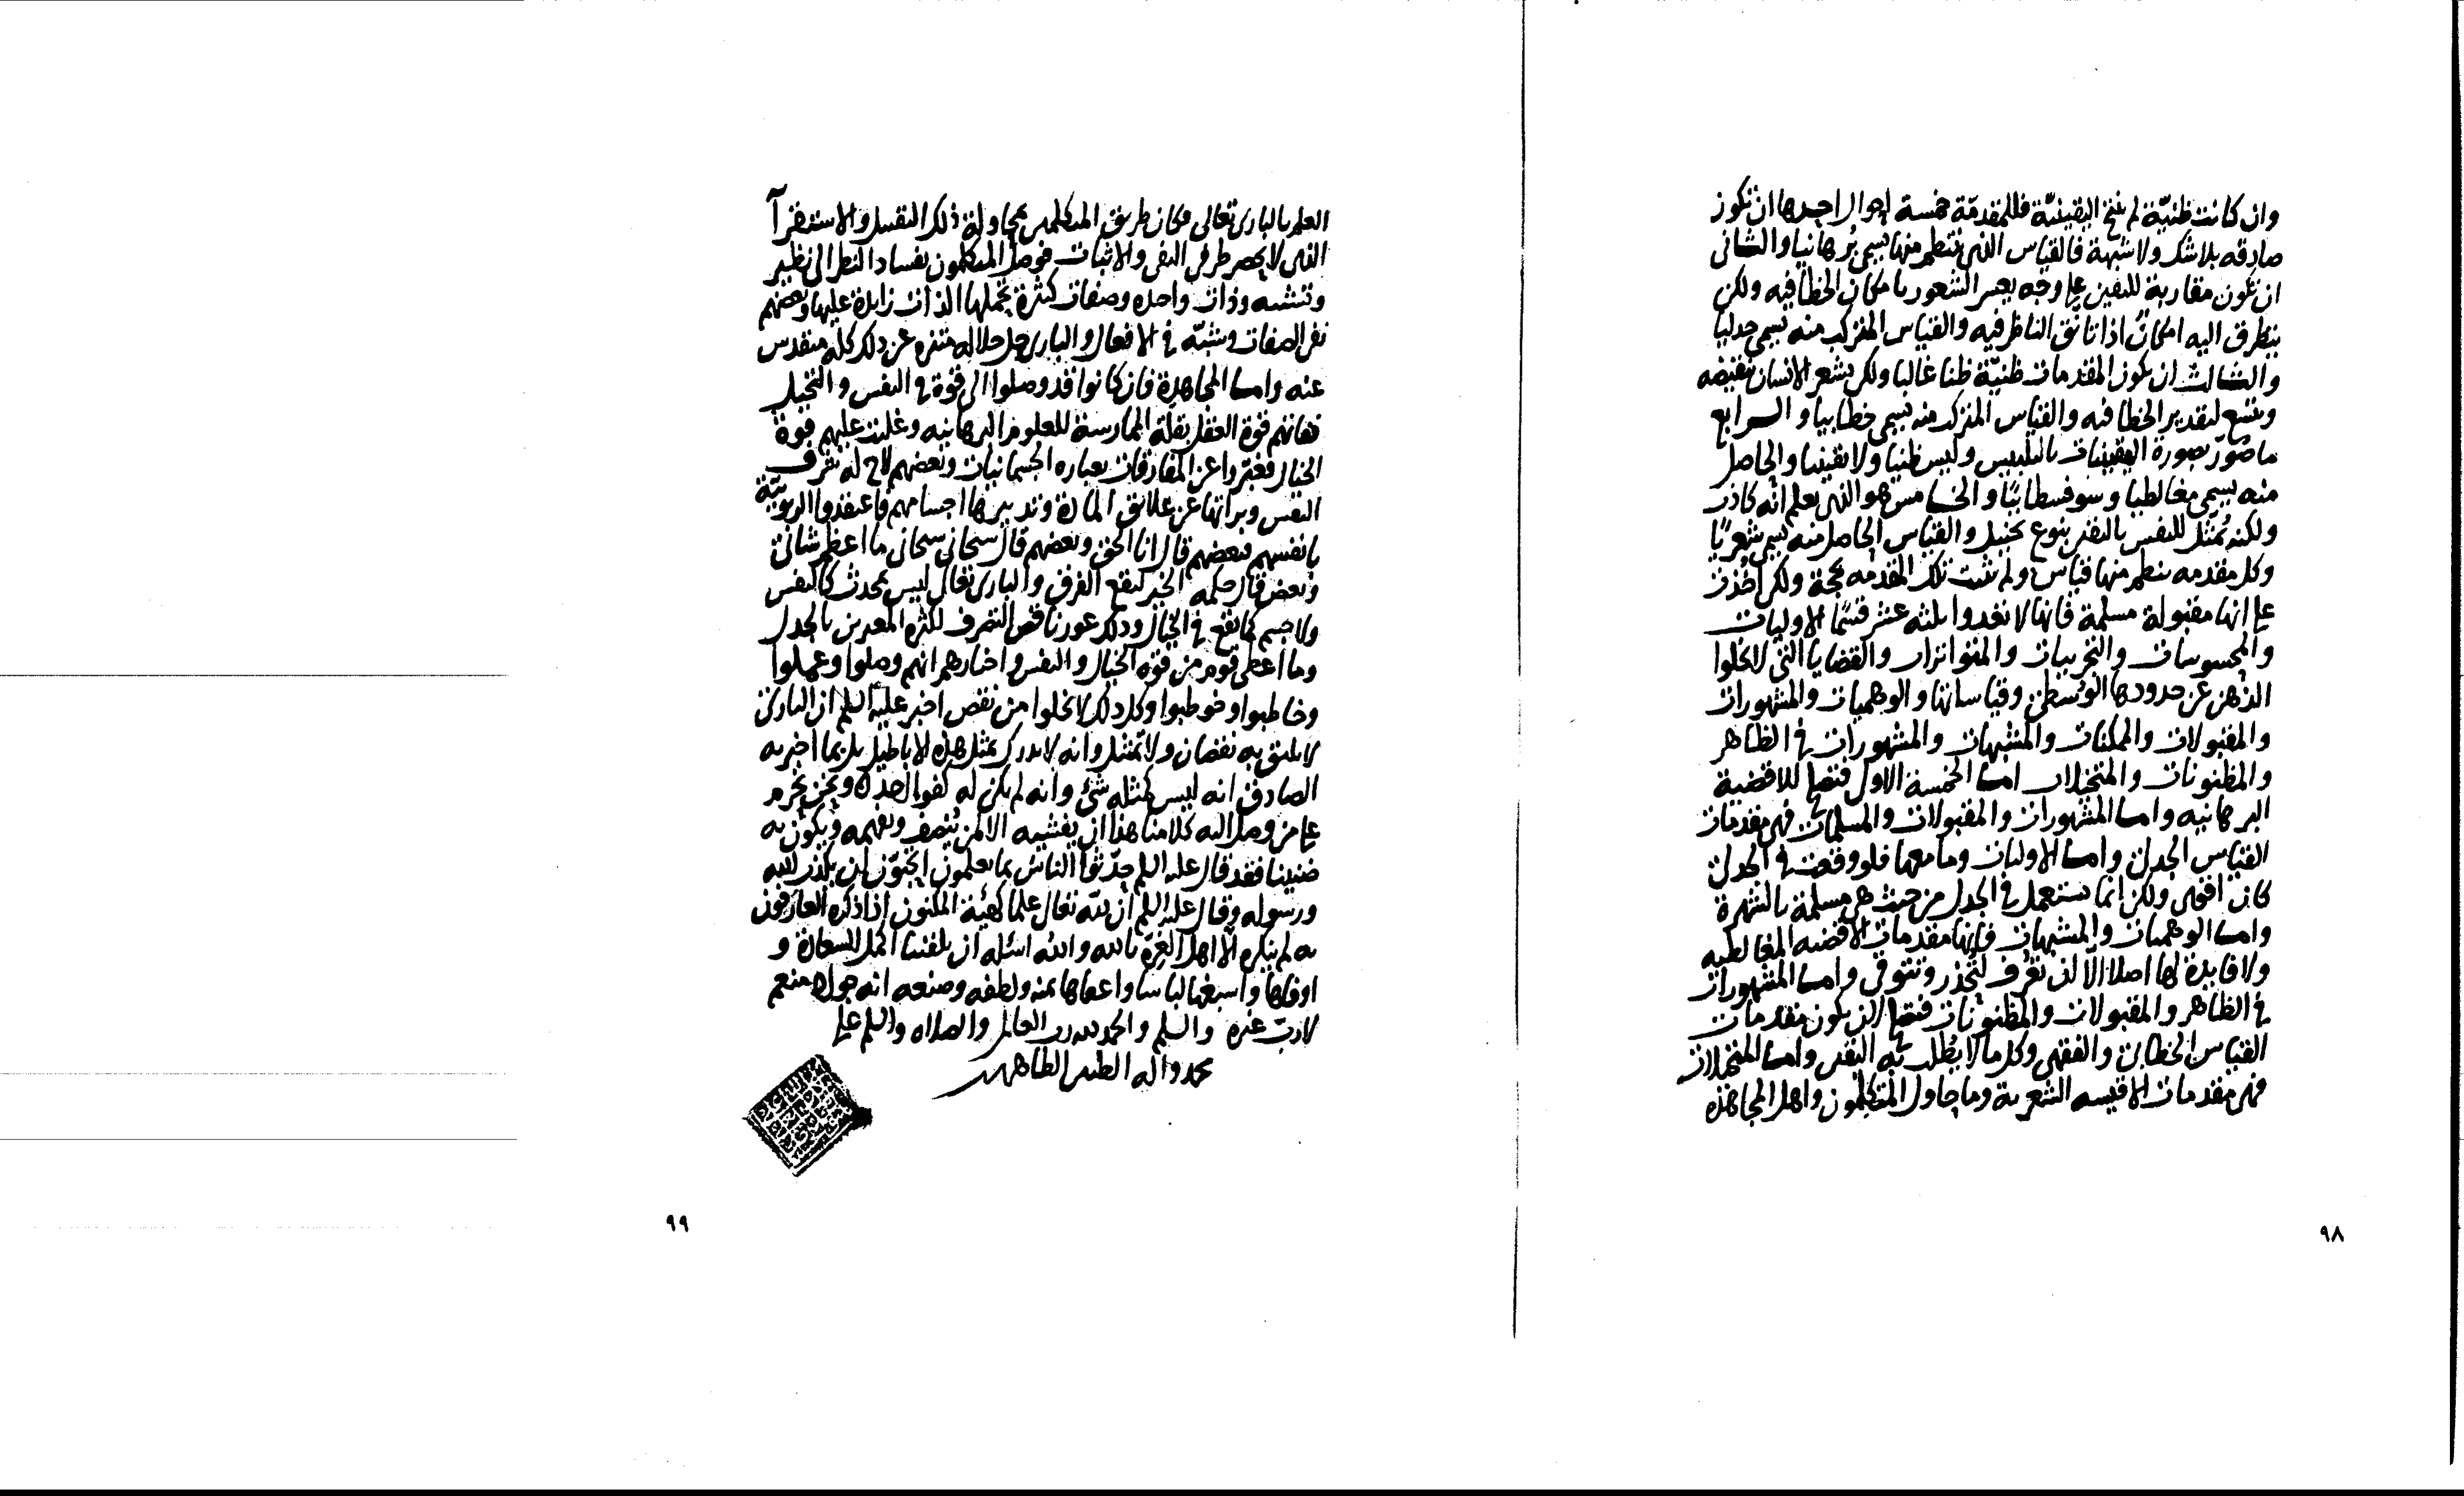 وان كانت ظنيّة لم ينتج اليقينيّة فللمقدمّة خمسة احوال احدها ان تكون
صادقه بلا شك ولا شبهة فالقياس الذى ينتظم منها يسمى بُرهانيا والثانى
ان تكون مقاربة لليقين على وجه يعسر الشعور بامكان الخطا فيه ولكن
يتطرق اليه امكانٌ اذا تانّق الناظر فيه والقياس المتركب منه يسمى جدليا
والثالث ان تكون المقدمات ظنيّة ظنا غالبا ولكن يشعر الانسان بنقيضه
ويتسع لتقدير الخطا فيه والقياس المتركب منه يسمى خطابيا والرابع
ما صُوّر بصورة اليقينيات بالتلبيس وليس ظنيا ولا يقينيا والحاصل
منه يسمى مغالطيا وسوفسطائيا والخامس هو الذى يعلم انّه كاذب
ولكنه تُمثّل للنفس بنوع تخييل والقياس الحاصل منه يسمى شعريًا
وكل مقدمه ينتظم منها قياس ولم تثبت تلك المقدمه بحجة ولكن اُخذت
على انها مقبولة مسلمة فانها لا تعدوا ثلثه عشر قسمًا الاوليات
والمحسوسات والتجريبات والمتواترات والقضايا التى لا يخلوا
الذهن عن حدودها الوسطى وقياساتها والوهميات والمشهورات
والمقبولات والمسلمات والمشبهات والمشهورات فى الظاهر
والمظنونات والمتخيلات امـا الخمسة الاول فتصلح للاقيسة
البرهانيه وامـا المشهورات والمقبولات والمسلمات فهى مقدمات
القياس الجدلى وامـا الاوليات وما معها فلو وقعت فى الجدل
كان اقوى ولكن انما تستعمل فى الجدل من حيث هى مسلمة بالشهرة
وامـا الوهميات والمشبهات فانها مقدمات الاقيسه المغالطيه
ولا فايدة لها اصلا الّا ان تعرف لتُحذر وتتوقى وامـا المشهورات
فى الظاهر والمقبولات والمظنونات فتصلح لان تكون مقدمات
القياس الخطابى والفقهى وكل ما لا يُطلب به اليقين وامـا المتخيلات
فهى مقدمات الاقيسه الشعريه وما حاول المتكلمون واهل المجاهده
٩٨
العلم بالبارى تعالى وكان طريق المتكلمين بمحاولة ذلك التقسيم والاستقرآ
الذى لا يحصر طرفى النفى والاثبات فوصل المتكلمون بفساد النظر الى نظير
وتشبيه وذات واحده وصفات كثيرة تحملها الذات زايدة عليها وبعضهم
نفى الصفات وشبّه فى الافعال والبارى جل جلاله متنزه عن ذلك كله متقدس
عنه وامـا المجاهدة فان كانوا قد وصلوا الى قوة فى النفس والتخيل
فهانهم قوة العقل بقلّة الممارسة للعلوم البرهانيه وغلبت عليهم قوة
الخيال فعبّروا عن المفارقات بعباره الجسمانيات وبعضهم لاح له شرف
النفس وبرائتها عن علائق المادة وتدبيرها اجسامهم فاعتقدوا الربوبيّة
بانفسهم فبعضهم قال انا الحق وبعضهم قال سبحانى سبحانى ما اعظم شانى
وبعض قال حكمه الخبر ليقع الفرق والبارى تعالى ليس بمحدث كالنفس
ولا جسم كما يقع فى الخيال وذلك عور ناقص التصرف لكثره المعدين بالجدل
وما اعطى قوم من قوة الخيال والنفس واخبارهم انهم وصلوا وعملوا
وخاطبوا وخوطبوا وكل ذلك لا يخلوا من نقص اخبر عليه السلم ان البارى
لا يلحق به نقصان ولا تمثيل وانه لا يدرك بمثل هذه الاباطيل بل بما اخبر به
الصادق انه ليس كمثله شئ وانه لم يكن له كفوا احد ونحن نحرم
على من وصل اليه كلامنا هذا ان يفشيه الا لمن يُنصف ويفهمه ويكون به
ضنينا فقد قال عليه السلم حدّثوا الناس بما يعلمون اتحبّون ان يكذب الله
ورسوله وقال عليه السلم ان لله تعالى علما كهيئة المكنون اذا ذكره العارفون
به لم ينكره الّا اهل الغِرّة بالله والله اسئله ان يلقننا اكمل السعادة و
اوفاها واسبغها لباسا واعفاها بمنه ولطفه وصنعه انه جواد منعم
لا ربّ غيره والسلم والحمد لله رب العالمين والصلاه والسلم على
محمد واله الطيبين الطاهرين
٩٩